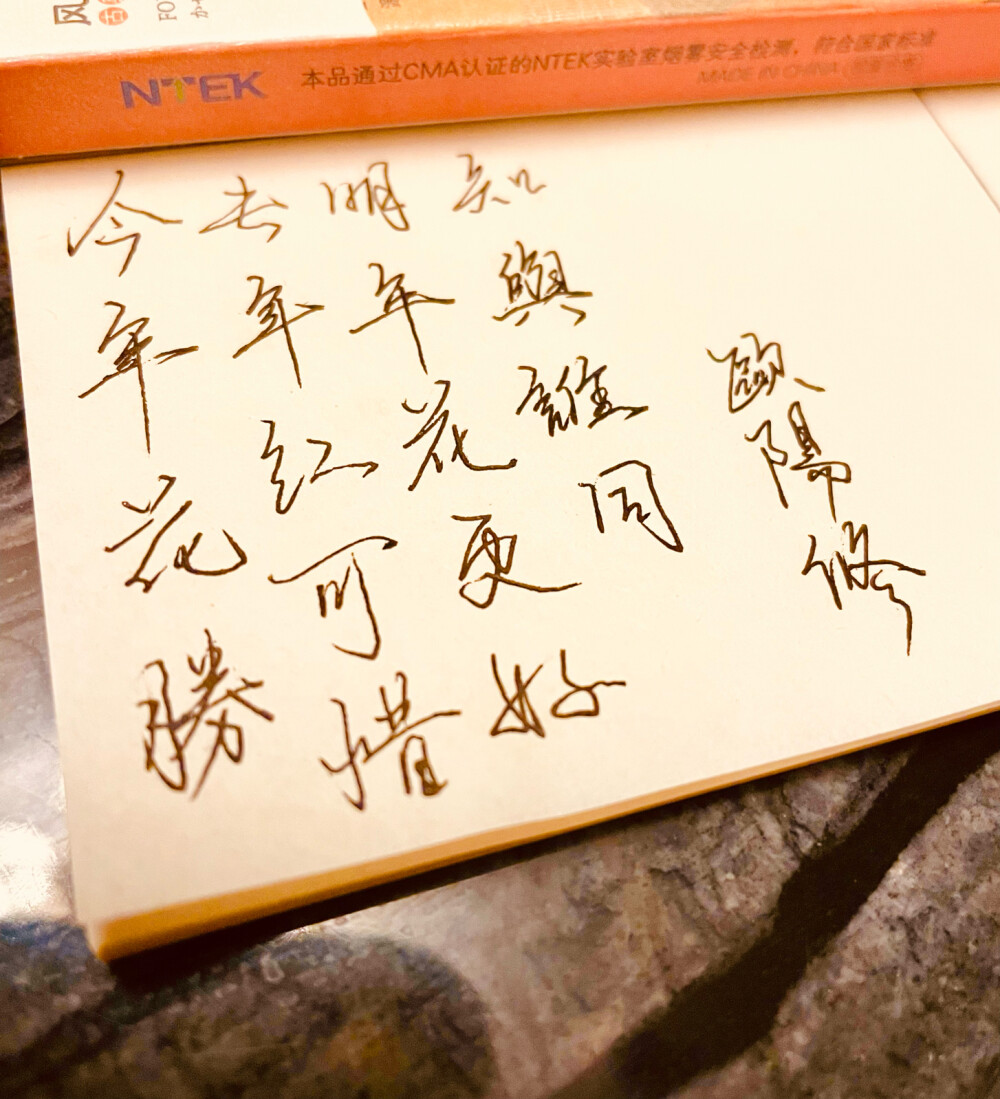 风
FO
NTEK
本品通过CMA认证的NTEK实验室烟雾安全检测，符合国家标准
MADE IN CHINA
今年花勝
去年红可惜
明年花更好
知與誰同
歐陽修